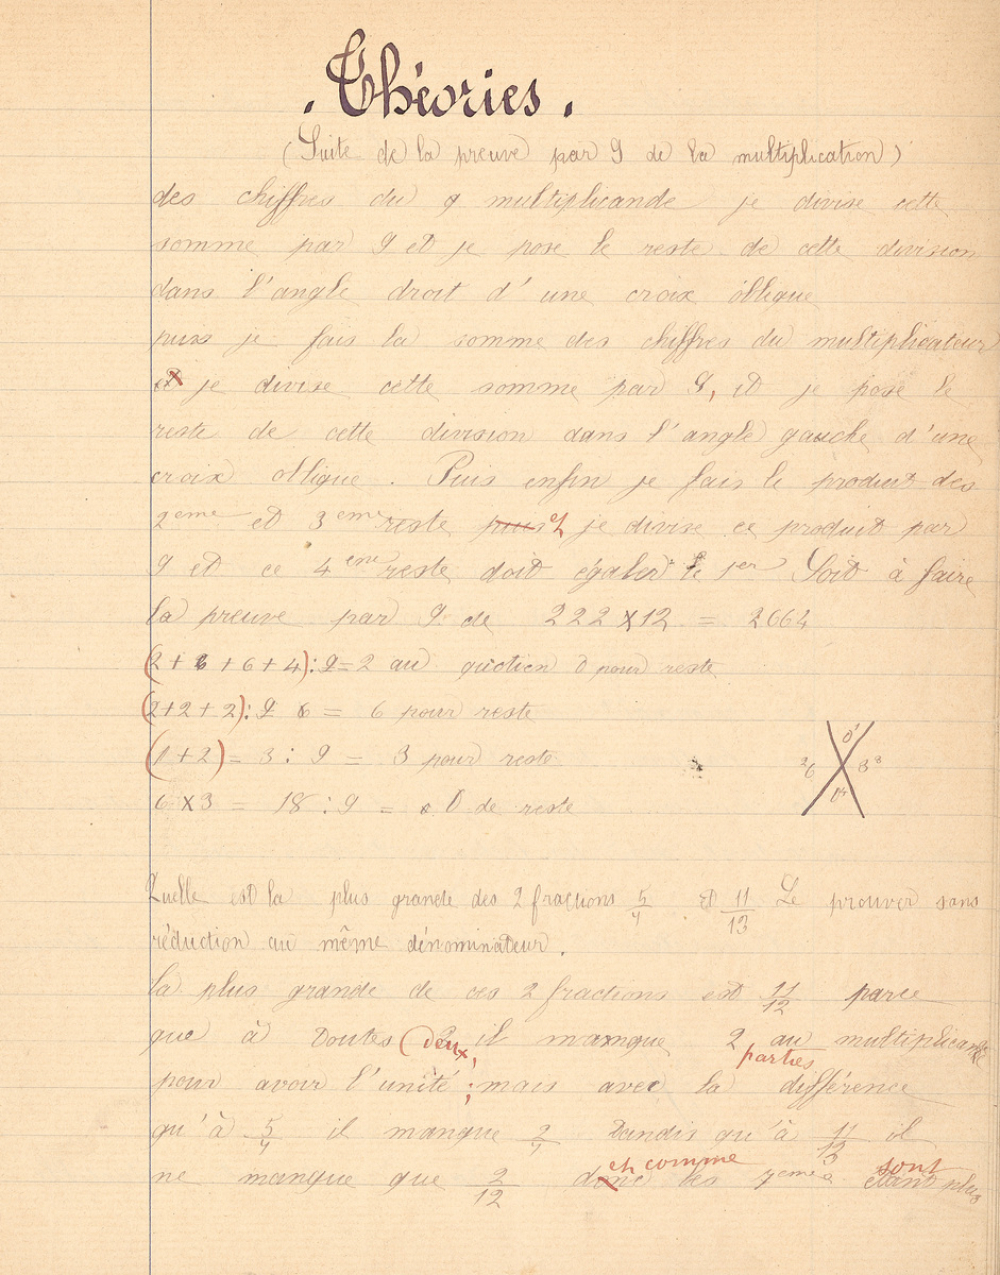 . Théories .
(Suite de la preuve par 9 de la multiplication)
des chiffres du multiplicande je divise cette
somme par 9 et je pose le reste de cette division
dans l'angle droit d'une croix oblique
puis je fais la somme des chiffres du multiplicateur
et je divise cette somme par 9, et je pose le
reste de cette division dans l'angle gauche d'une
croix oblique. Puis enfin je fais le produit des
2eme et 3eme reste puis et je divise ce produit par
9 et ce 4eme reste doit égaler le 1er Soit à faire
la preuve par 9 de 222 x 12 = 2664
(2 + 6 + 6 + 4) : 9 = 2 au quotien 0 pour reste
(2+2+2) : 9 = 6 pour reste
(1+2) = 3 : 9 = 3 pour reste
6 x 3 = 18 : 9 = 0 de reste
0 1
2 6 3 3
0 4
Quelle est la plus grande des 2 fractions 5/7 et 11/13 Le prouver sans
réduction au même dénominateur.
la plus grande de ces 2 fractions est 11/12 parce
que à toutes (deux, il manque 2 au multiplicande
parties
pour avoir l'unité ; mais avec la différence
qu'à 5/7 il manque 2/7 tandis qu'à 11/13 il
en comme sont
ne manque que 2/12 donc les 7emes étant plus